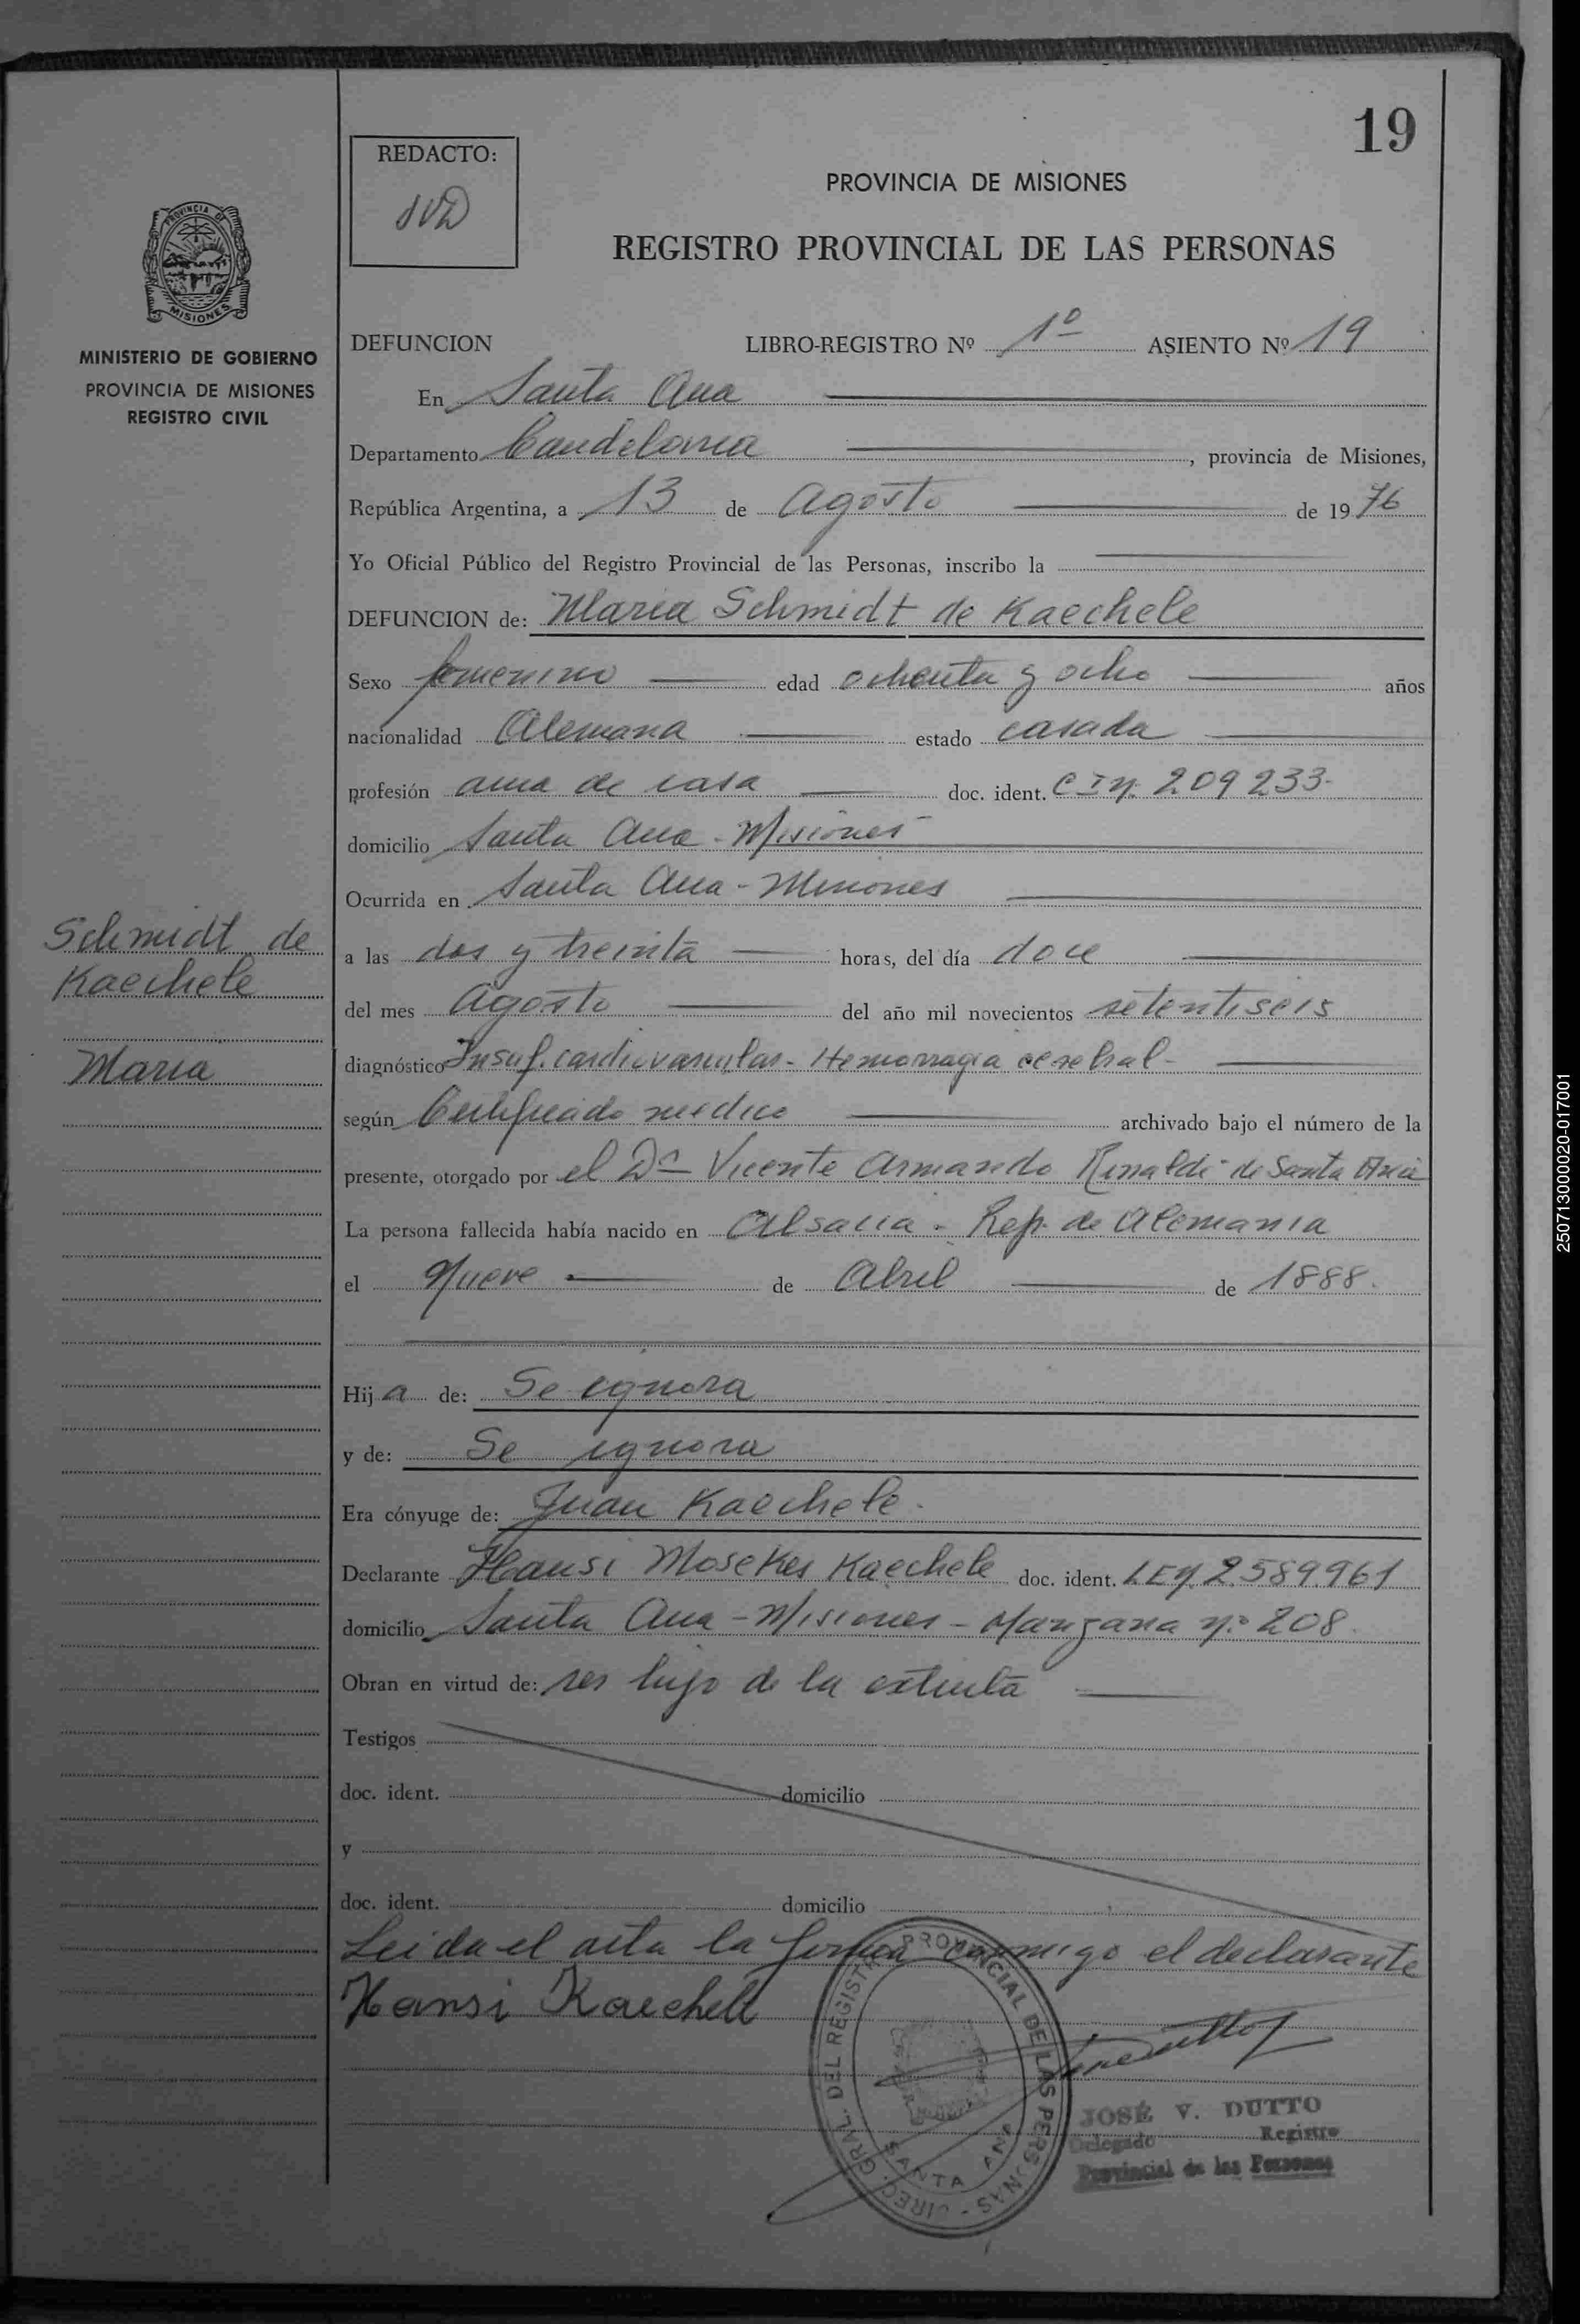 19
REDACTO:
JVD
PROVINCIA DE MISIONES
REGISTRO PROVINCIAL DE LAS PERSONAS
PROVINCIA DE
MISIONES
MINISTERIO DE GOBIERNO
PROVINCIA DE MISIONES
REGISTRO CIVIL
DEFUNCION LIBRO-REGISTRO Nº 1º ASIENTO Nº 19
En Santa Ana
Departamento Candelaria, provincia de Misiones,
República Argentina, a 13 de Agosto de 1976
Yo Oficial Público del Registro Provincial de las Personas, inscribo la
DEFUNCION de: Maria Schmidt de Kaechele
Sexo femenino edad ochenta y ocho años
nacionalidad Alemana estado casada
profesión ama de casa doc. ident. CIN. 209 233-
domicilio Santa Ana - Misiones
Ocurrida en Santa Ana - Misiones
Schmidt de
Kaechele
Maria
a las dos y treinta horas, del día doce
del mes Agosto del año mil novecientos setentiseis
diagnóstico Insuf. cardiovascular - Hemorragia cerebral -
según Certificado medico archivado bajo el número de la
presente, otorgado por el Dr Vicente Armando Rinaldi de Santa Ana
La persona fallecida había nacido en Alsacia - Rep. de Alemania
el Nueve de Abril de 1888.
Hija de: Se ignora
y de: Se ignora
Era cónyuge de: Juan Kaechele.
Declarante Hansi Kaechele doc. ident. LEN. 2.589961
domicilio Santa Ana - Misiones - Manzana Nº 208.
Obran en virtud de: ser hijo de la extinta
Testigos
doc. ident. domicilio
y
doc. ident. domicilio
Leida el acta la firma conmigo el declarante
Hansi Kaechele
DIREC. GRAL. DEL REGISTRO PROVINCIAL DE LAS PERSONAS -
SANTA ANA
JOSÉ V. DUTTO
Delegado Registro
Provincial de las Personas
250713000020-017001